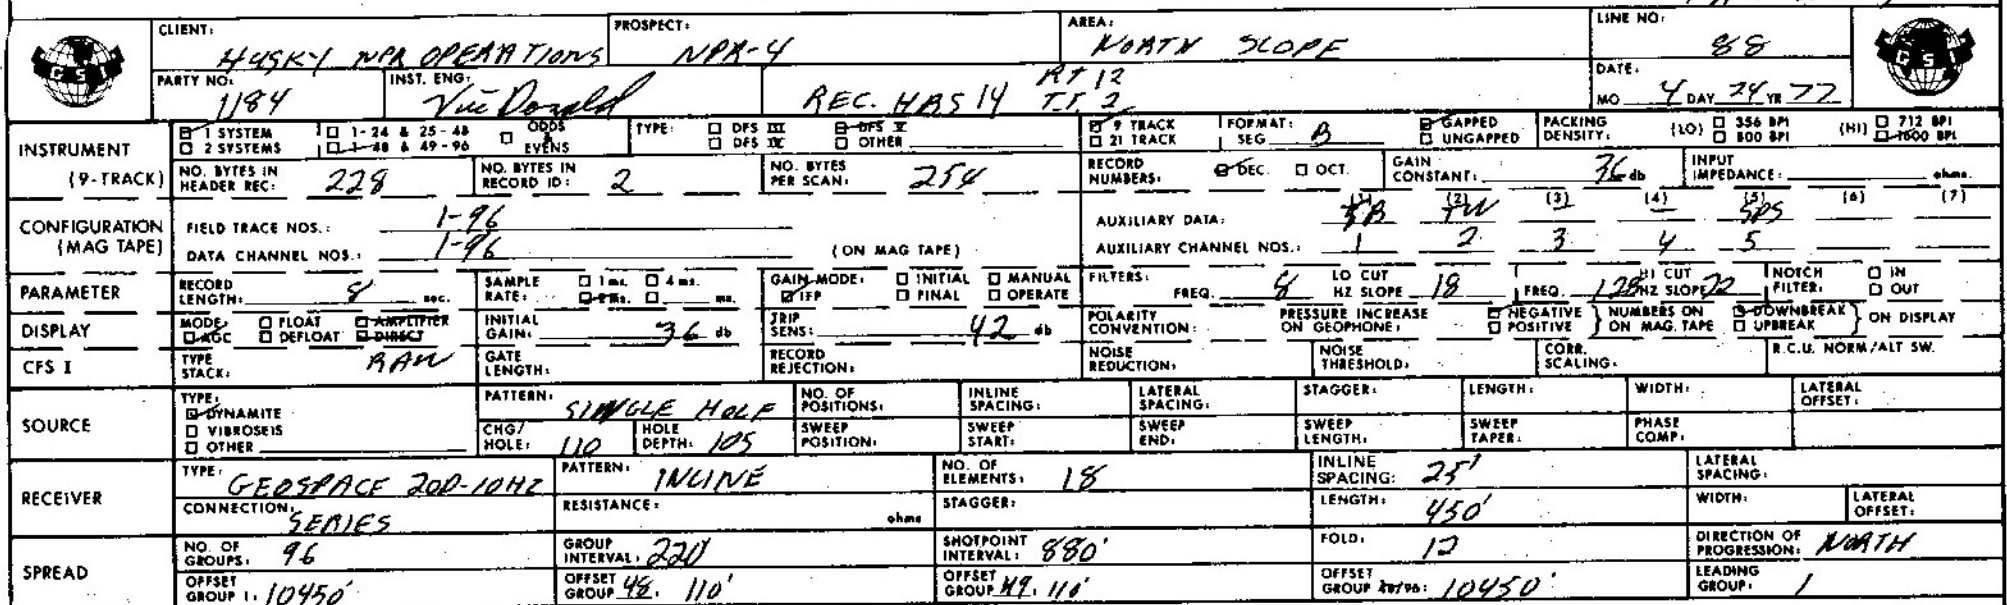 CLIENT: HUSKY NPR OPERATIONS PROSPECT: NPR-4 AREA: NORTH SLOPE LINE NO: 88
GSI
PARTY NO: 1184 INST. ENG: Vic Donald REC. HRS 14 RT 12 T.T. 2 DATE: MO 4 DAY 24 YR 77
GSI
INSTRUMENT (9-TRACK) 1 SYSTEM 1-24 & 25-48 ODDS & EVENS TYPE: DFS III DFS V 9 TRACK FORMAT: GAPPED PACKING DENSITY: (LO) 356 BPI (HI) 712 BPI
2 SYSTEMS 1-48 & 49-96 DFS IV OTHER 21 TRACK SEG B UNGAPPED 800 BPI 1600 BPI
NO. BYTES IN HEADER REC: 228 NO. BYTES IN RECORD ID: 2 NO. BYTES PER SCAN: 254 RECORD NUMBERS: DEC. OCT. GAIN CONSTANT: 36 db INPUT IMPEDANCE: ohms.
CONFIGURATION (MAG TAPE) FIELD TRACE NOS.: 1-96 AUXILIARY DATA: (1) TB (2) TW (3) (4) (5) SPS (6) (7)
DATA CHANNEL NOS.: 1-96 (ON MAG TAPE) AUXILIARY CHANNEL NOS.: 1 2 3 4 5
PARAMETER RECORD LENGTH: 8 sec. SAMPLE RATE: 1 ms. 4 ms. 2 ms. ms. GAIN MODE: INITIAL MANUAL IFP FINAL OPERATE FILTERS: FREQ. 8 LO CUT HZ SLOPE 18 FREQ. 128 HI CUT HZ SLOPE 72 NOTCH FILTER: IN OUT
DISPLAY MODE: FLOAT AMPLIFIER AGC DEFLOAT DIRECT INITIAL GAIN: 36 db TRIP SENS: 42 db POLARITY CONVENTION: PRESSURE INCREASE ON GEOPHONE: NEGATIVE POSITIVE } NUMBERS ON ON MAG. TAPE DOWNBREAK UPBREAK } ON DISPLAY
CFS I TYPE STACK: RAW GATE LENGTH: RECORD REJECTION: NOISE REDUCTION: NOISE THRESHOLD: CORR. SCALING: R.C.U. NORM/ALT SW.
SOURCE TYPE: DYNAMITE VIBROSEIS OTHER PATTERN: SINGLE HOLE NO. OF POSITIONS: INLINE SPACING: LATERAL SPACING: STAGGER: LENGTH: WIDTH: LATERAL OFFSET:
CHG/HOLE: 110 HOLE DEPTH: 105 SWEEP POSITION: SWEEP START: SWEEP END: SWEEP LENGTH: SWEEP TAPER: PHASE COMP:
RECEIVER TYPE: GEOSPACE 20D-10HZ PATTERN: INLINE NO. OF ELEMENTS: 18 INLINE SPACING: 25' LATERAL SPACING:
CONNECTION: SERIES RESISTANCE: ohms STAGGER: LENGTH: 450' WIDTH: LATERAL OFFSET:
SPREAD NO. OF GROUPS: 96 GROUP INTERVAL: 220' SHOTPOINT INTERVAL: 880' FOLD: 12 DIRECTION OF PROGRESSION: NORTH
OFFSET GROUP 1: 10450' OFFSET GROUP 48: 110' OFFSET GROUP 49: 110' OFFSET GROUP 48/96: 10450' LEADING GROUP: 1